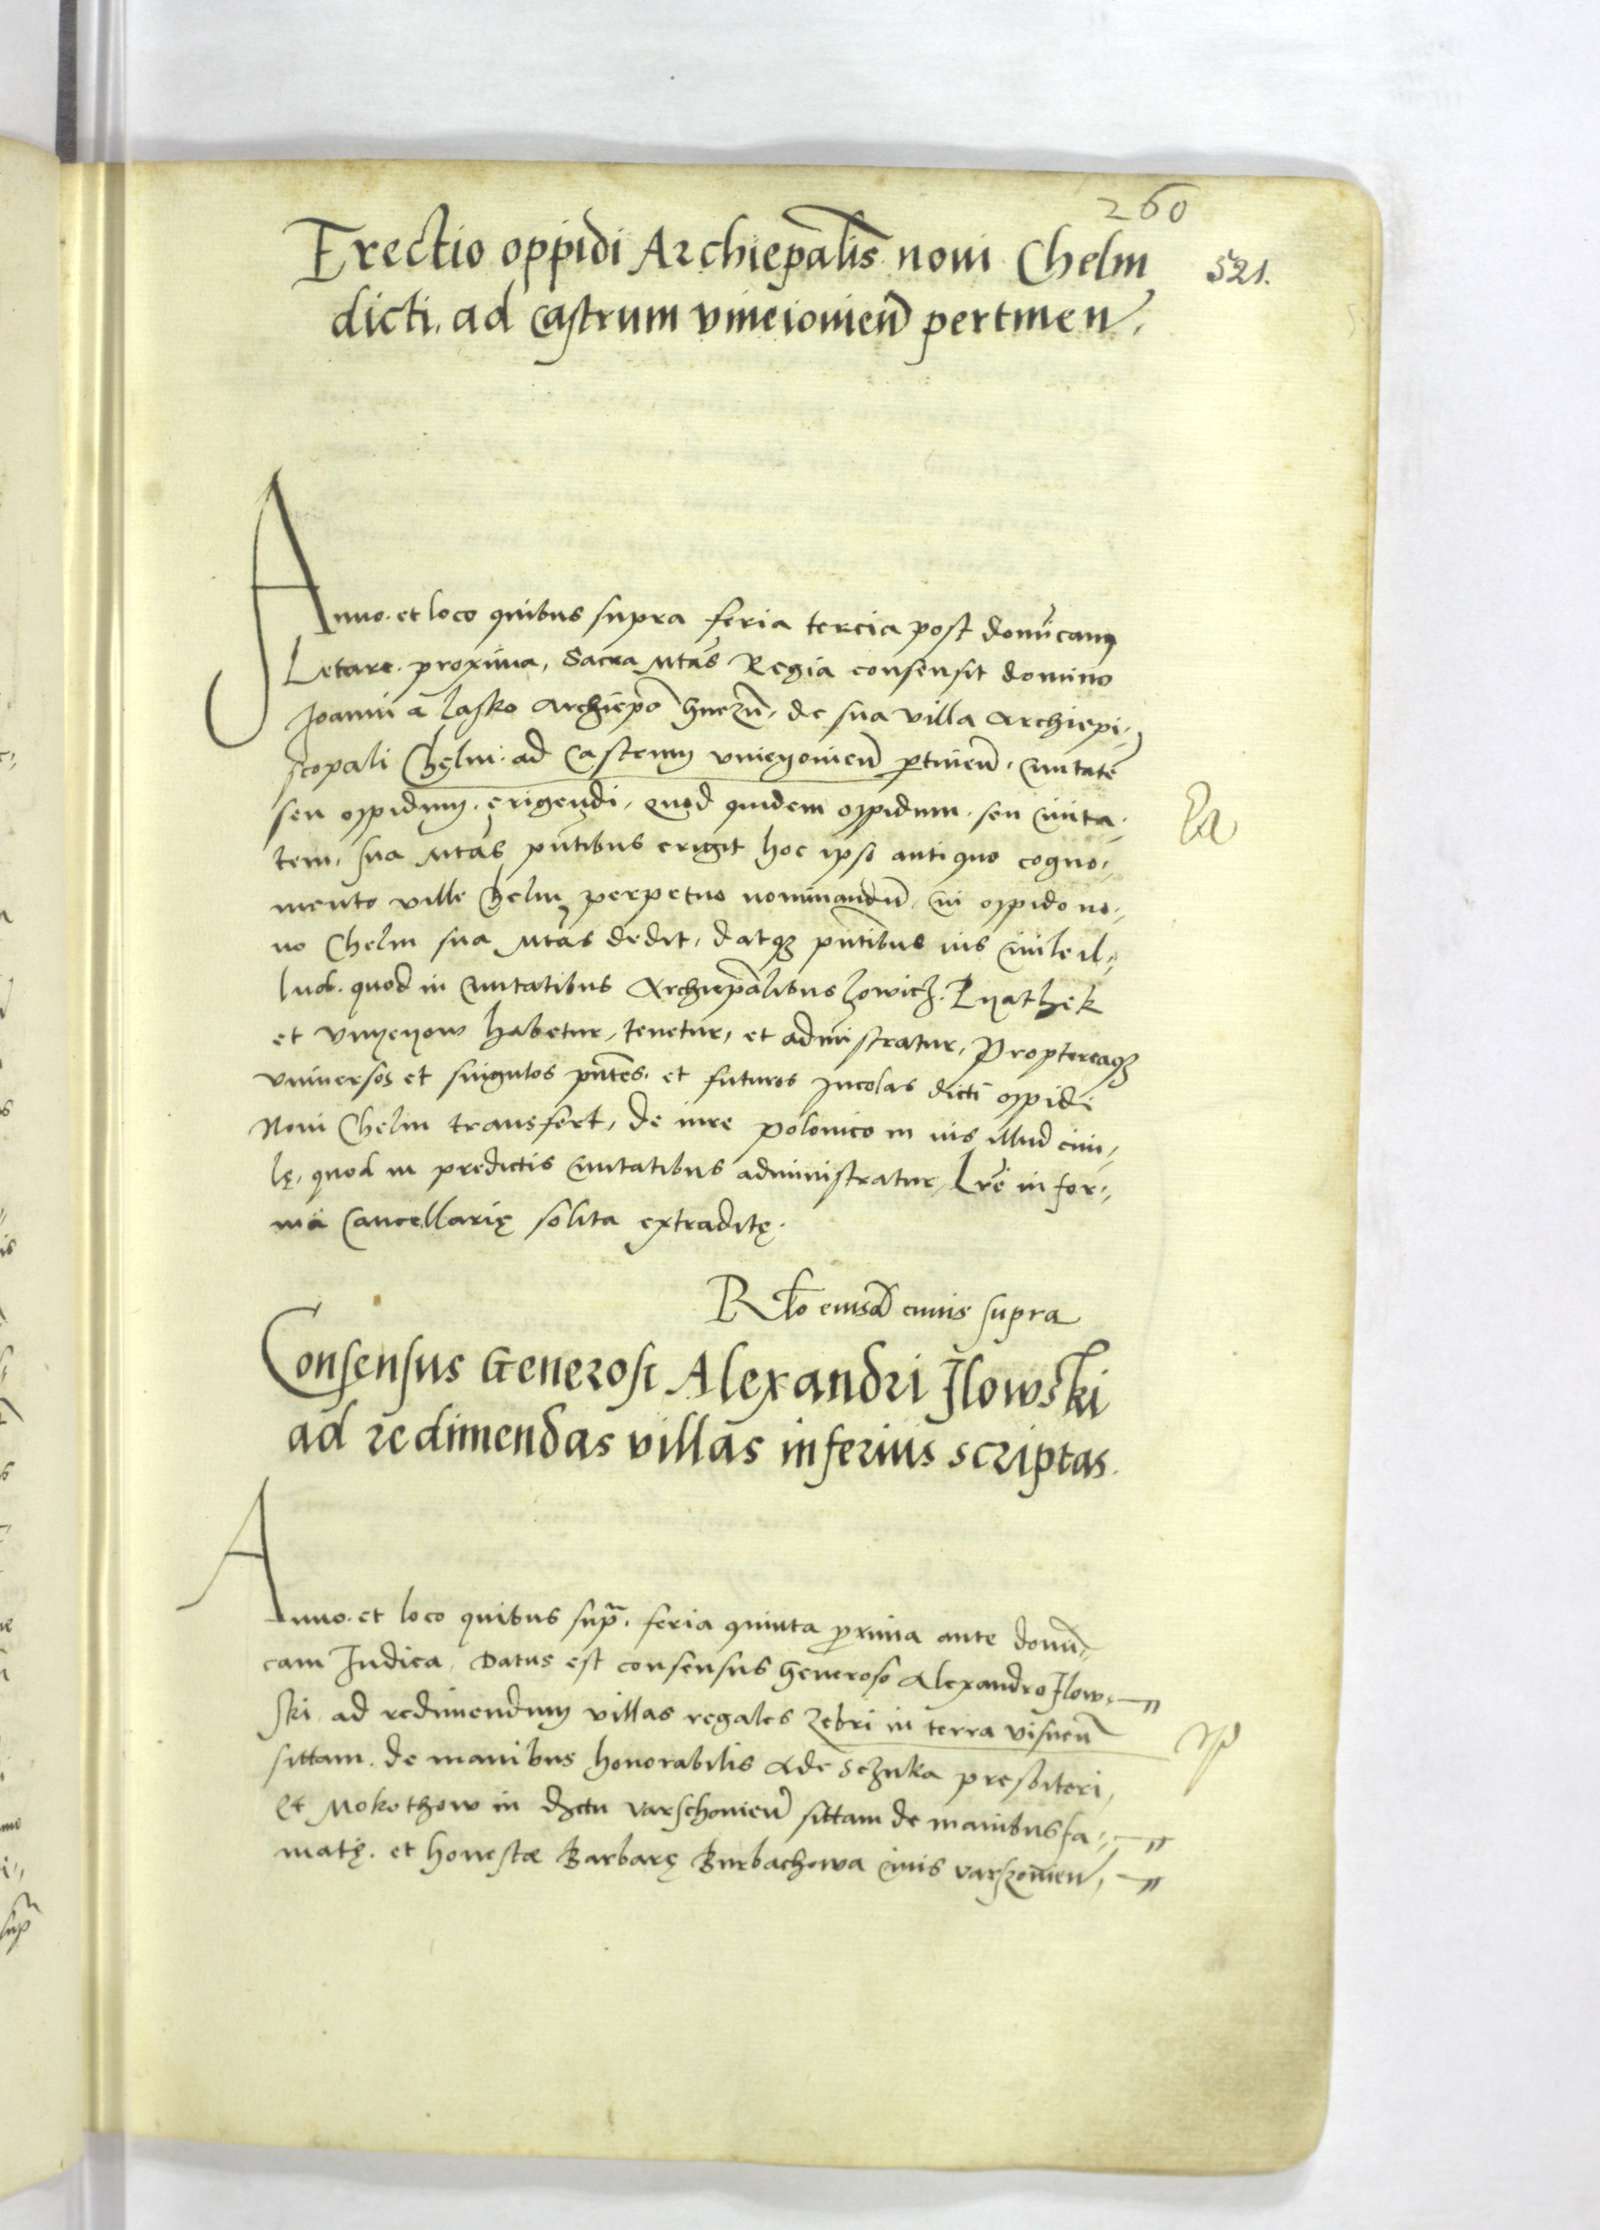 260
521.
Erectio oppidi Archiepalis novi Chelm
dicti, ad castrum vnieiovien pertinen,
Anno et loco quibus supra feria tercia post dominicam
Letare proxima, Sacra Mtas Regia consensit domino
Joanni a Lasko Archiepo Gnezn, de sua villa Archiepi-
scopali Chelm ad Castrum vnieyovien ptinen, civitate
seu oppidum erigendi, quod quidem oppidum seu civita-
tem, sua Mtas pntibus erigit hoc ipso antiquo cogno-
mento ville Chelm perpetuo nominandu, in oppido no-
vo Chelm sua Mtas dedit, datqz pntibus ius civile il-
lud quod in civitatibus Archiepalibus Lowicz, Pyathek
et Vnyeyow habetur, tenetur, et administratur, Proptereaqz
vniversos et singulos pntes et futuros incolas dicti oppidi
Novi Chelm transfert, de iure polonico in ius illud civi-
le, quod in predictis civitatibus administratur, Lre in for-
ma Cancellarię solita extraditę.
Rlo eiusd cuius supra
Consensus Generosi Alexandri Jlowski
ad redimendas villas inferius scriptas.
Anno et loco quibus supra, feria quinta proxima ante domi-
cam Judica, Datus est consensus Generoso Alexandro Jlow-
ski ad redimendum villas regales Zebri in terra visnen
sittam de manibus honorabilis Ade presbiteri,
Et Mokothow in dictu varschovien sittam de manibus fa-
matę et honestæ Barbarę Burbachowa civis varszovien,